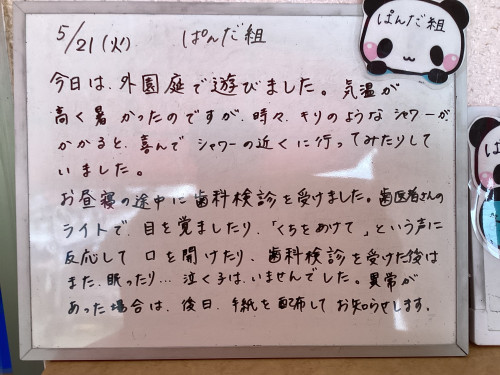 5/21(火) ぱんだ組
ぱんだ組
今日は、外園庭で遊びました。気温が
高く暑かったのですが、時々、きりのようなシャワーが、
かかると、喜んでシャワーの近くに行ってみたりして
いました。
お昼寝の途中に歯科検診を受けました。歯医者さんの
ライトで、目を覚ましたり、「くちをあけて」という声に
反応して口を開けたり、歯科検診を受けた後は
また、眠ったり…泣く子は、いませんでした。異常が
あった場合は、後日、手紙を配布してお知らせします。
ぱん